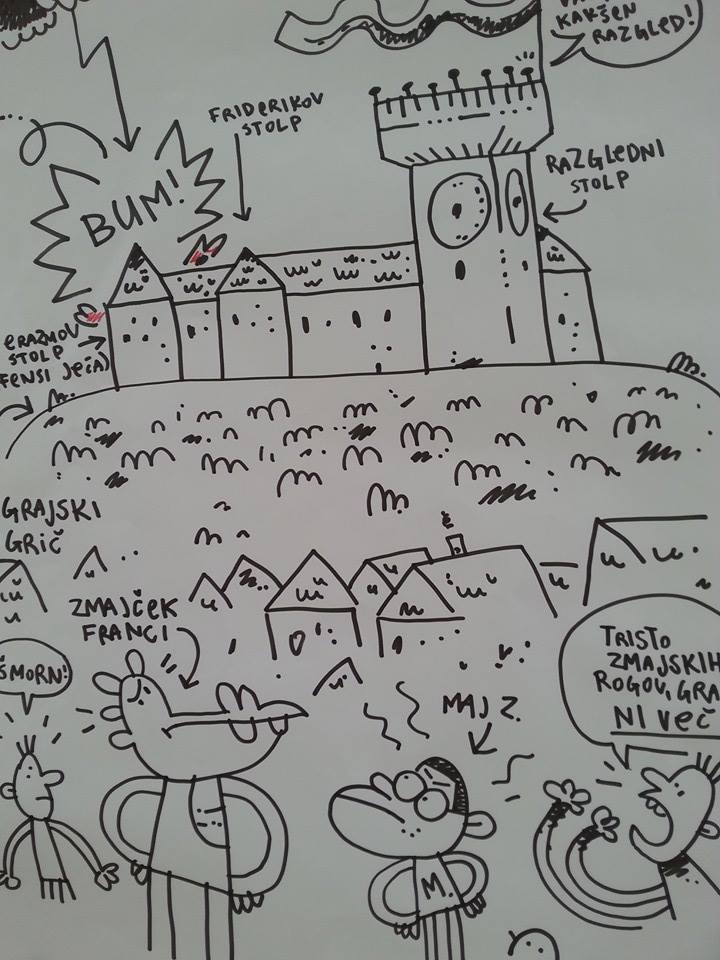 KAKŠEN
RAZGLED!
FRIDERIKOV
STOLP
BUM!
RAZGLEDNI
STOLP
ERAZMOV
STOLP
JEČA)
GRAJSKI
GRIČ
ZMAJČEK
FRANCI
TRISTO
ZMAJSKIH
ROGOV,
NI VEČ
MAJ Z.
M.